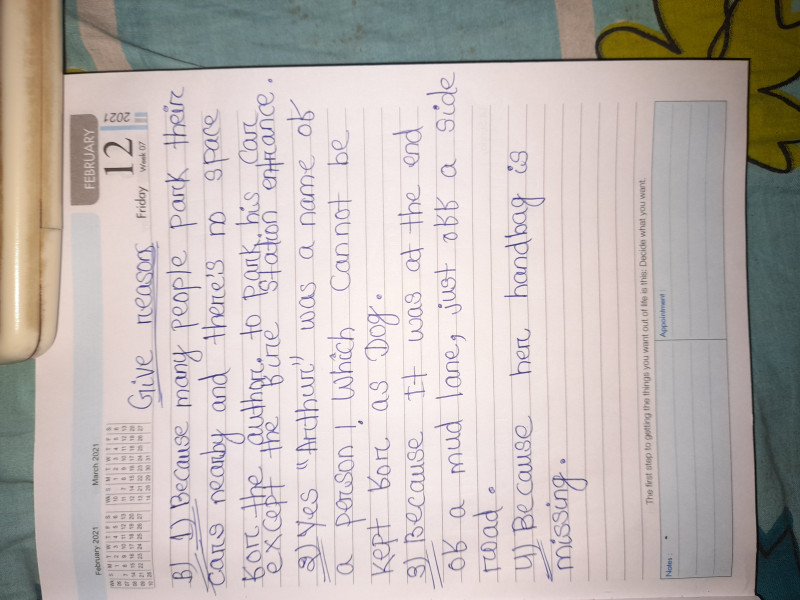 FEBRUARY
12
2021
Friday Week 07
February 2021
March 2021
Give reason
B) 1) Because many people park their
cars nearby and there's no space
for the author. to park his Car
except the fire station entrance.
2) Yes "Arthur" was a name of
a person! Which cannot be
kept for as Dog.
3) Because It was at the end
of a mud lane, just off a side
road.
4) Because her handbag is
missing.
The first step to getting the things you want out of life is this: Decide what you want.
Notes :
Appointment :